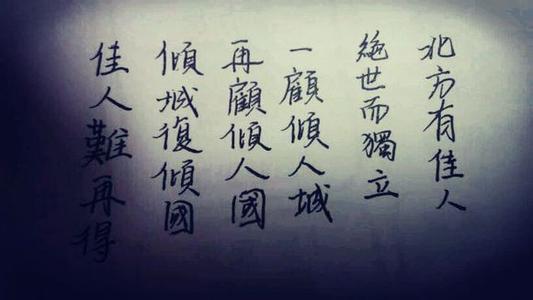 北方有佳人
絕世而獨立
一顧傾人城
再顧傾人國
傾城復傾國
佳人難再得